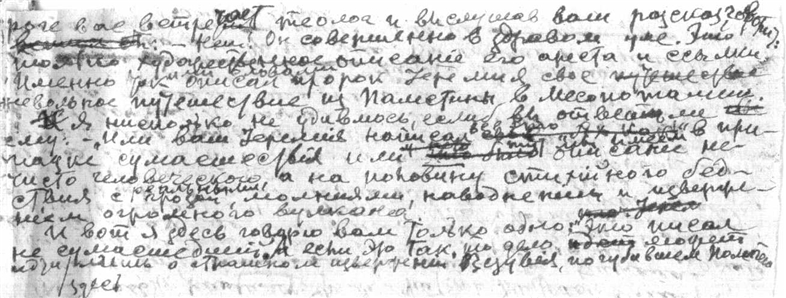 роге вас встречает теолог и выслушав ваш рассказ говорит:
— Нет. Он совершенно в здравом уме. Это
художественное описание его ареста и ссылки.
Именно так описал пророк Иеремия свое путешествие
невольное путешествие из Палестины в Месопотамию.
И я нисколько не удивлюсь, если вы ответили
ему: — Или ваш Иеремия написал все это в при-
падке сумасшествия или это описание не-
чисто человеческого а на половину стихийного бед-
ствия с грозой, молниями, наводнением и изверже-
нием огромного вулкана.
И вот я здесь говорю вам только одно: Это писал
не сумасшедший. А если это так, то дело может
идти лишь о страшном извержении Везувия, погубившем
здесь